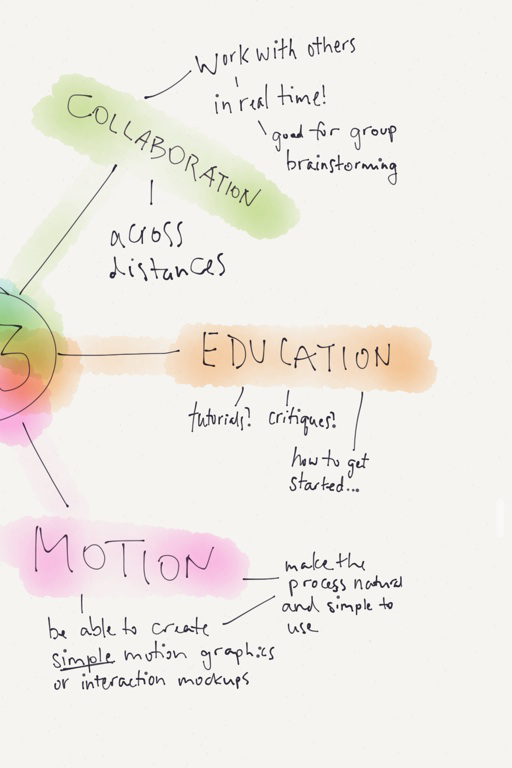 Work with others
in real time!
good for group
brainstorming
COLLABORATION
across
distances
3
EDUCATION
tutorials? critiques?
how to get
started...
MOTION
make the
process natural
and simple to
use
be able to create
simple motion graphics
or interaction mockups